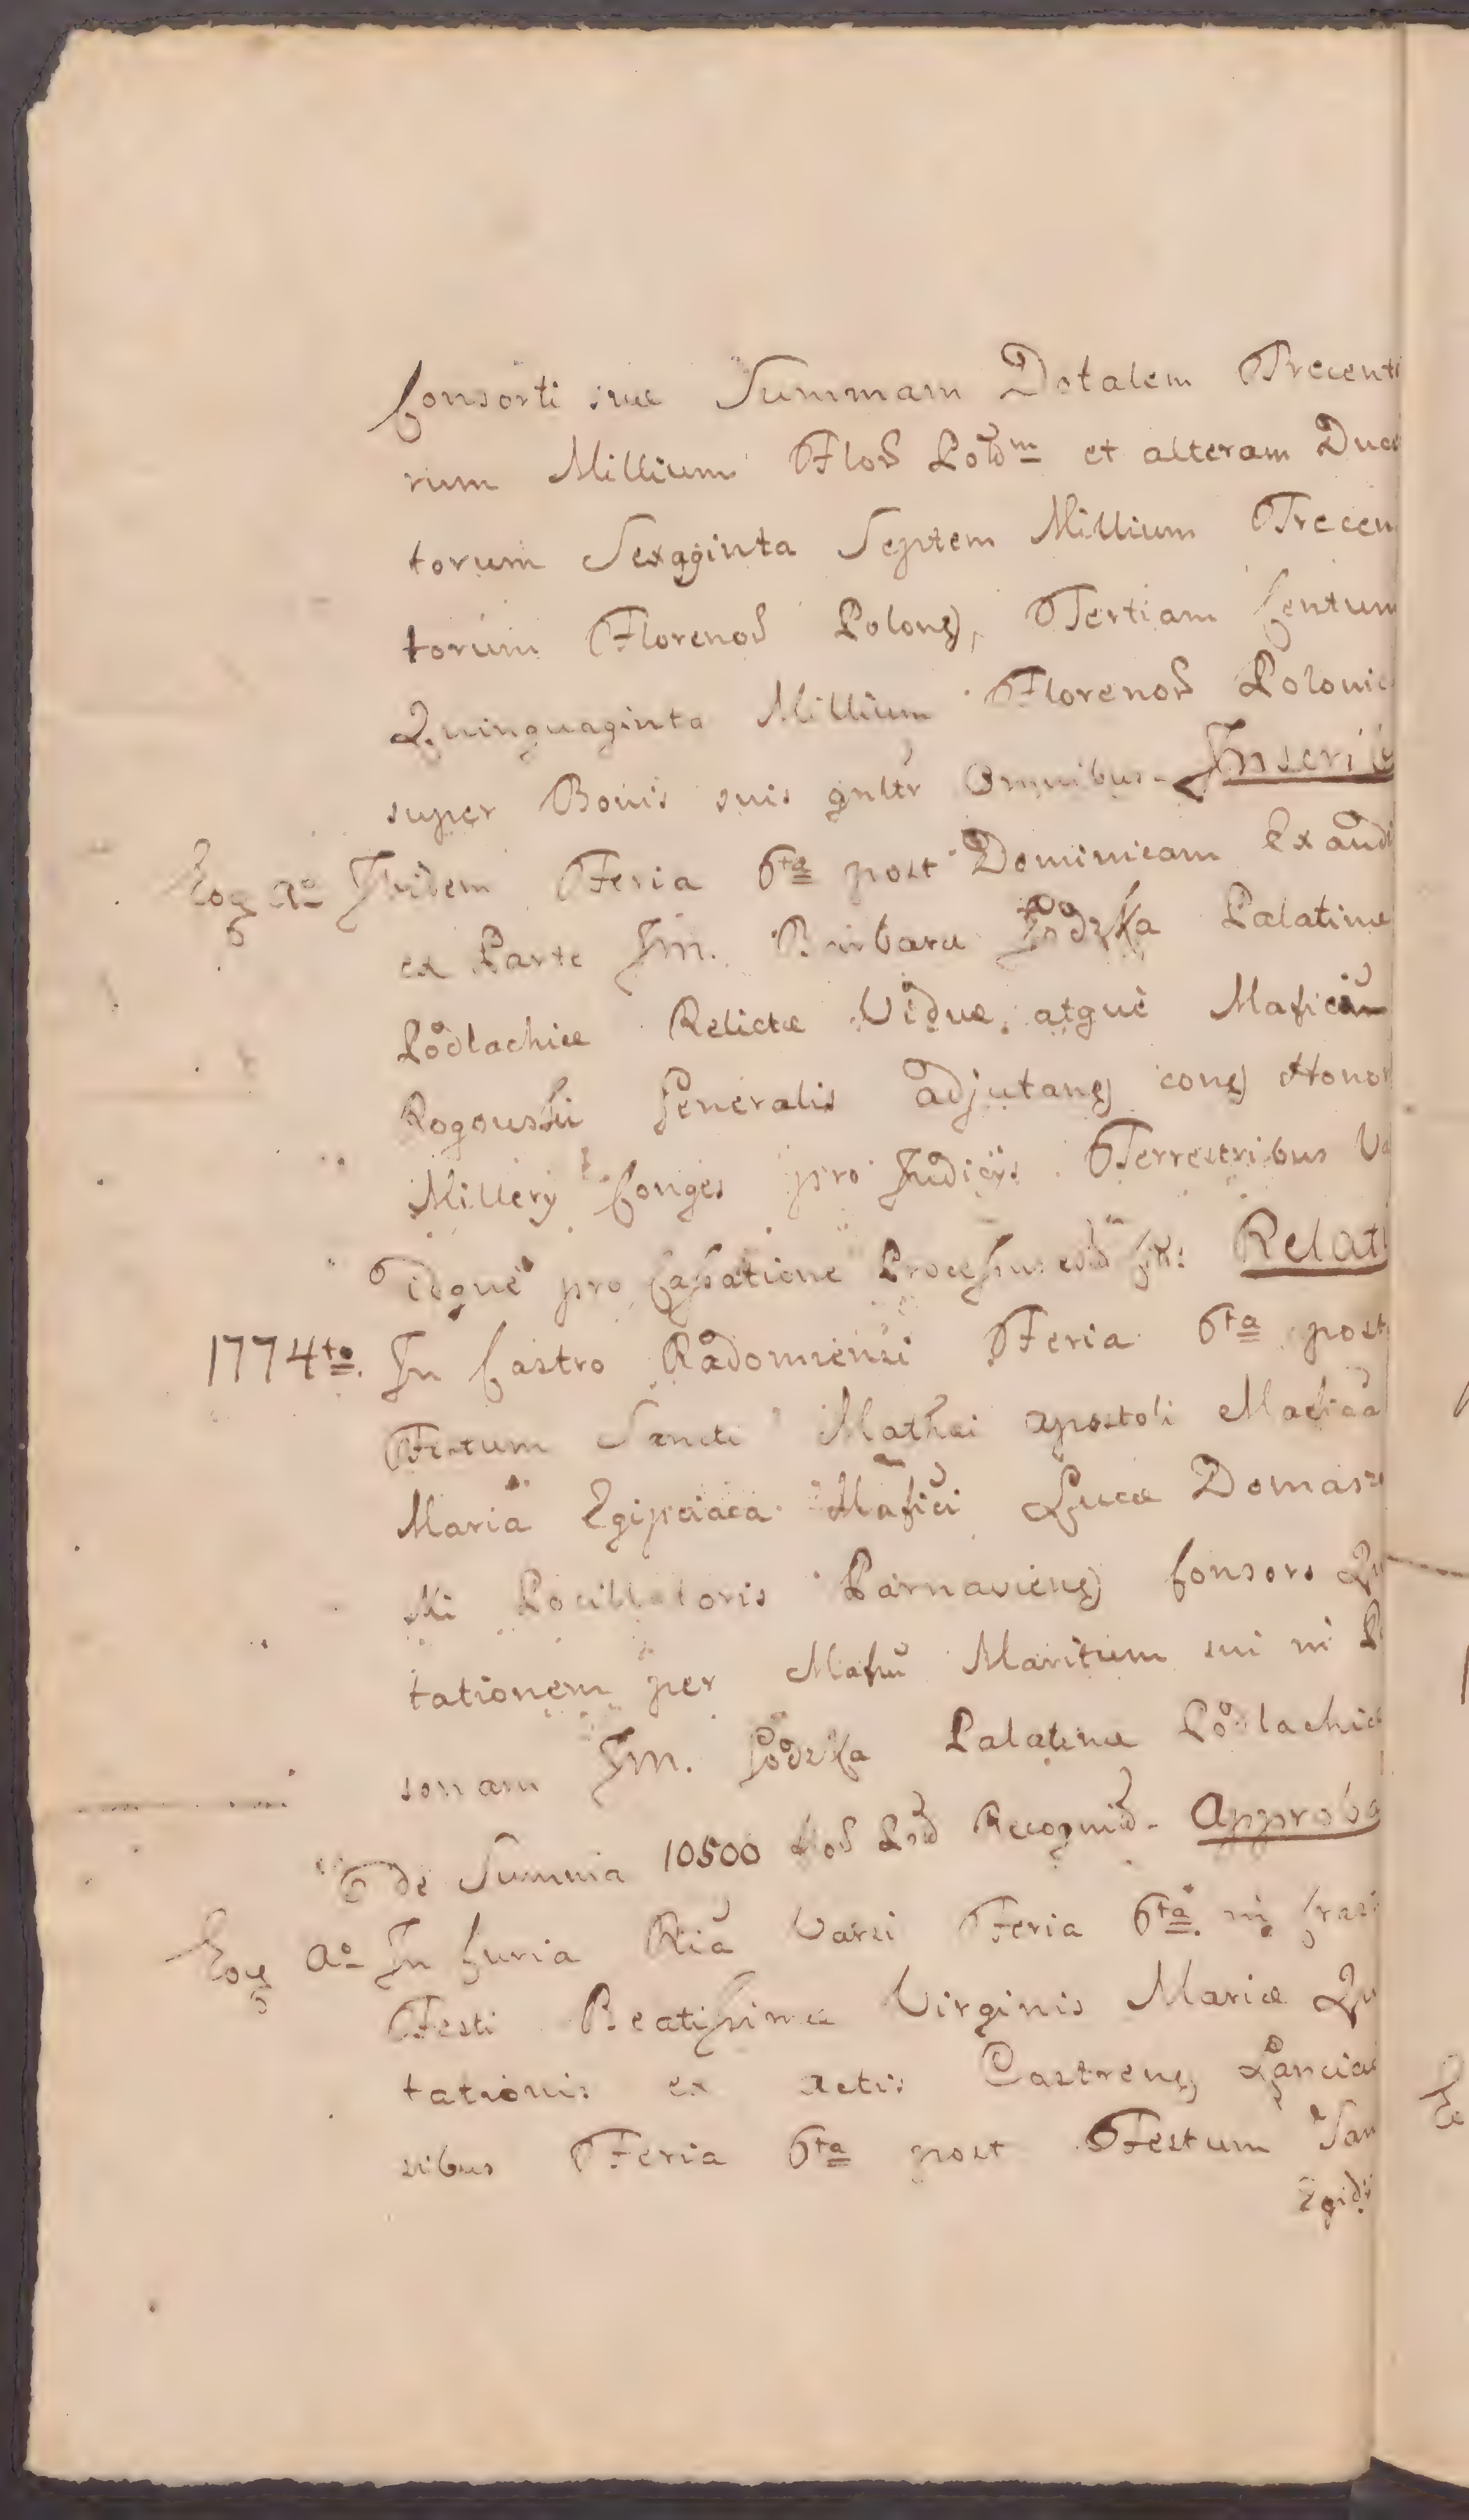 Consorti suæ Summam Dotalem Trecento
rum Millium Flor Poloᵐ et alteram Ducen
torum Sexaginta Septem Millium Trecen
torum Florenor Polong, Tertiam Centum
Quinquaginta Millium Florenor Polonic
super Bonis suis gnltr Omnibus- Inscribi
Eoq Aº Ibidem Feria 6ta post Dominicam Exaudi
ex Parte Jm. Barbaræ Palatinæ
Podlachiæ Relictæ Viduæ, atque Mafici
Rogouski Generalis adjutang cong Honor
Millery Conges pro Judicÿs Terrestribus
idque pro Cassatione Processus Relati
1774to. In Castro Radomiensi Feria 6ta post
Festum Sancti Mathæi apostoli
Maria Egipciaca Mafici Lucæ Domasz
ki Pocillatoris Parnavieng Consors Qu
tationem per Mafcu Maritum sui in P
sonam Jm. Palatinæ Podlachiæ
de Summa 10500 flor Pol Recognid- Approba
Eoq Aº In Curia Ria Varsi Feria 6ta. in Crasti
Festi Beatissimæ Virginis Mariæ
tationis ex actis Castreng
sibus Feria 6ta post Festum San
Egidi